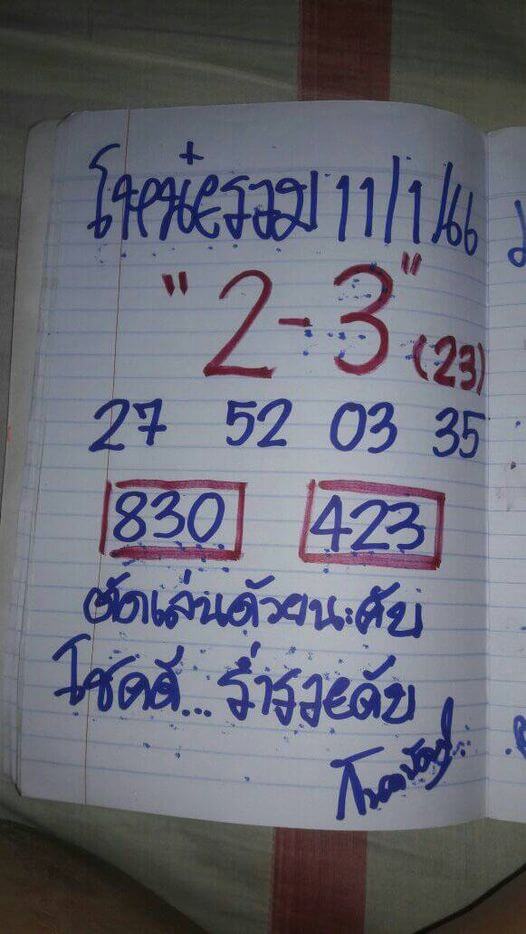 11/1/66
"2-3" (23)
27 52 03 35
830 423
ตัดเล่นด้วยนะคับ
โชคดี... ร่ำรวยคับ